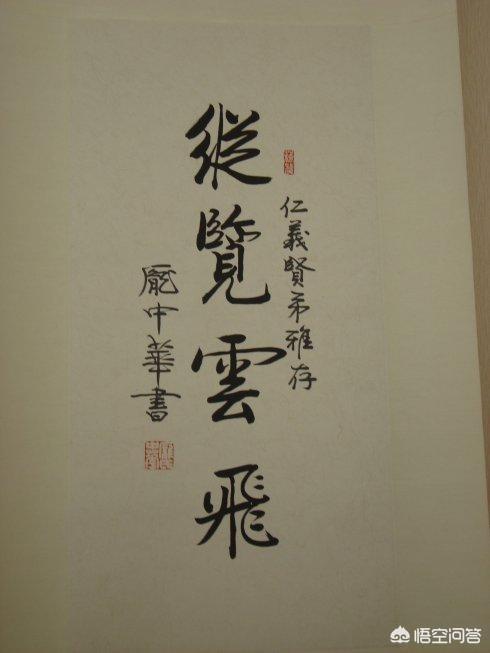 仁義賢弟雅存
縱覽雲飛
龐中華書
悟空问答